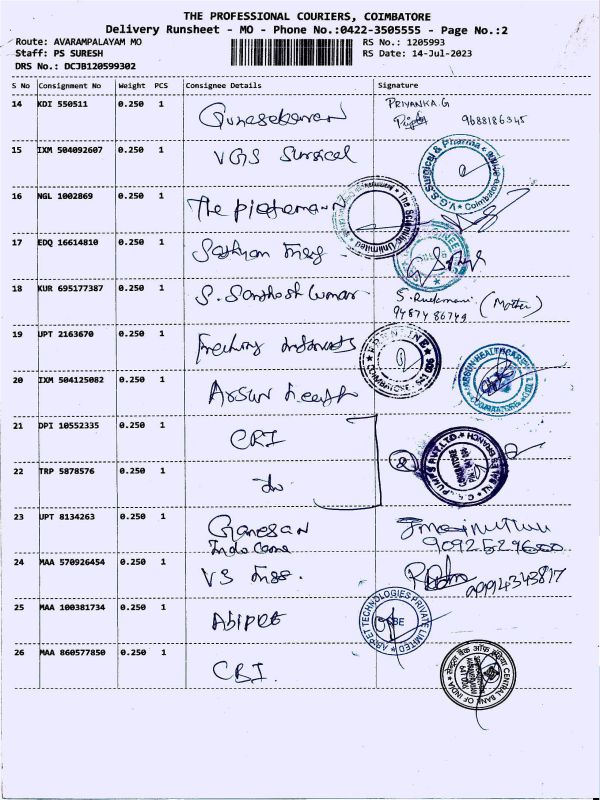 THE PROFESSIONAL COURIERS, COIMBATORE
Delivery Runsheet - MO - Phone No.:0422-3505555 - Page No.:2
Route: AVARAMPALAYAM MO
RS No.: 1205993
Staff: PS SURESH
RS Date: 14-Jul-2023
DRS No.: DCJB120599302
S No Consignment No Weight PCS Consignee Details Signature
14 KDI 550511 0.250 1 Gunasekaran PRIYANKA.G
9688186345
15 IXM 504092607 0.250 1 VGS Surgical
16 NGL 1002869 0.250 1 The
17 EDQ 16614810 0.250 1 Sathyam Engg
18 KUR 695177387 0.250 1 S. Santhosh Kumar S. Rukmani (Mother)
94874 86749
19 UPT 2163670 0.250 1
20 IXM 504125082 0.250 1 Arsun Health
21 DPI 10552335 0.250 1 CRI
22 TRP 5878576 0.250 1 do
23 UPT 8134263 0.250 1 Ganesan
24 MAA 570926454 0.250 1 VS Engg.
25 MAA 100381734 0.250 1 Abipet
26 MAA 860577850 0.250 1 CBI.
CENTRAL BANK OF INDIA